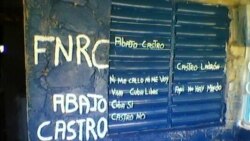 FNRC
ABAJO
CASTRO
ABAJO CASTRO
CASTRO LADRÓN
Ni me CALLO Ni me VOY
VIVA CubA LibRE
Aqui No HAY Miedo
CubA Si
CASTRO NO